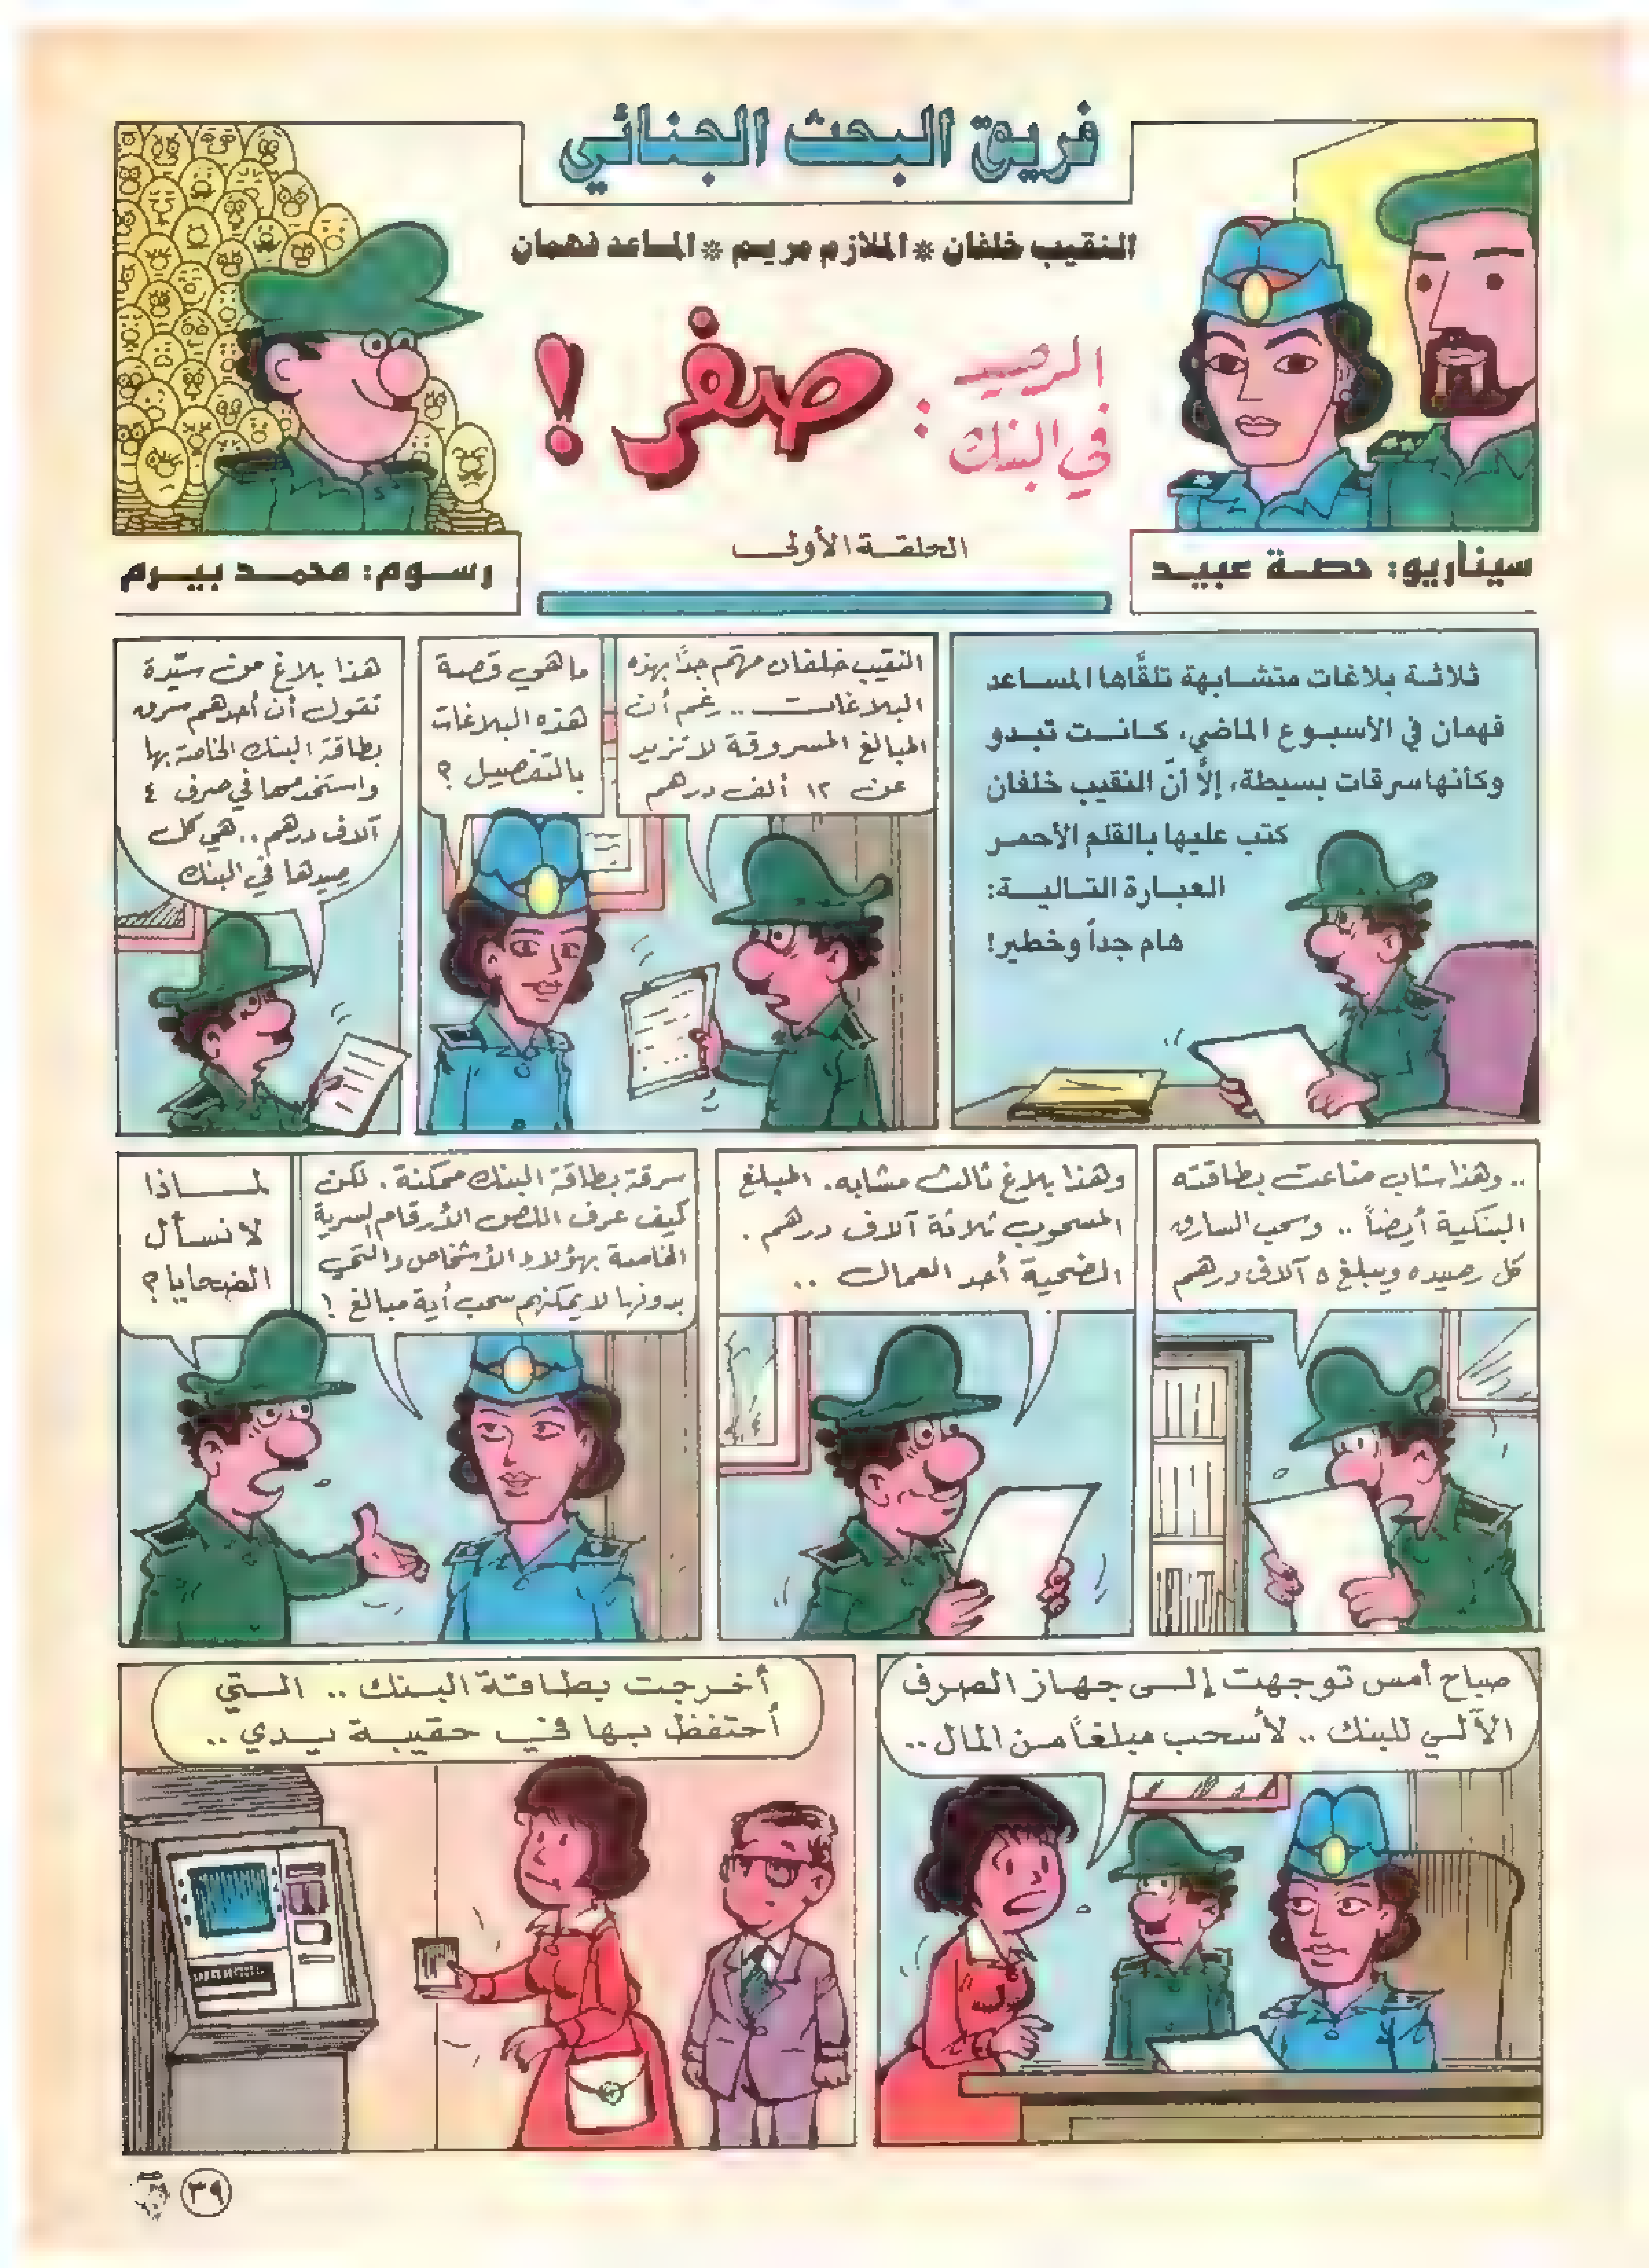 فريق البحث الجنائي
النقيب خلفان * الملازم مريم * المساعد فهمان
الرصيد
في البنك :
صفر !
الحلقة الأولى
سيناريو: حصة عبيد
رسوم: محمد بيرم
ثلاثة بلاغات متشابهة تلقَّاها المساعد
فهمان في الأسبوع الماضي، كانت تبدو
وكأنها سرقات بسيطة، إلَّا أنّ النقيب خلفان
كتب عليها بالقلم الأحمر
العبارة التالية:
هام جداً وخطير!
النقيب خلفان مهتم جدًا بهذه
البلاغات .. رغم أن
المبالغ المسروقة لا تزيد
عن ١٢ ألف درهم
ما هي قصة
هذه البلاغات
بالتفصيل ؟
هذا بلاغ من سيّدة
تقول أن أحدهم سرق
بطاقة البنك الخاصة بها
واستخدمها في صرف ٤
آلاف درهم .. هي كل
رصيدها في البنك
.. وهذا شاب ضاعت بطاقته
البنكية أيضاً .. وسحب السارق
كل رصيده ويبلغ ٥ آلاف درهم
وهذا بلاغ ثالث مشابه. المبلغ
المسحوب ثلاثة آلاف درهم .
الضحية أحد العمال ..
سرقة بطاقة البنك ممكنة . لكن
كيف عرف اللص الأرقام السرية
الخاصة بهؤلاء الأشخاص والتي
بدونها لا يمكنهم سحب أية مبالغ !
لماذا
لا نسأل
الضحايا؟
صباح أمس توجهت إلى جهاز الصرف
الآلي للبنك .. لأسحب مبلغاً من المال ..
أخرجت بطاقة البنك .. التي
أحتفظ بها في حقيبة يدي ..
٣٩